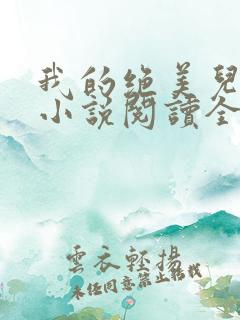 我的绝美兒
小说閱讀全
雲衣輕揚
未经同意禁止转载